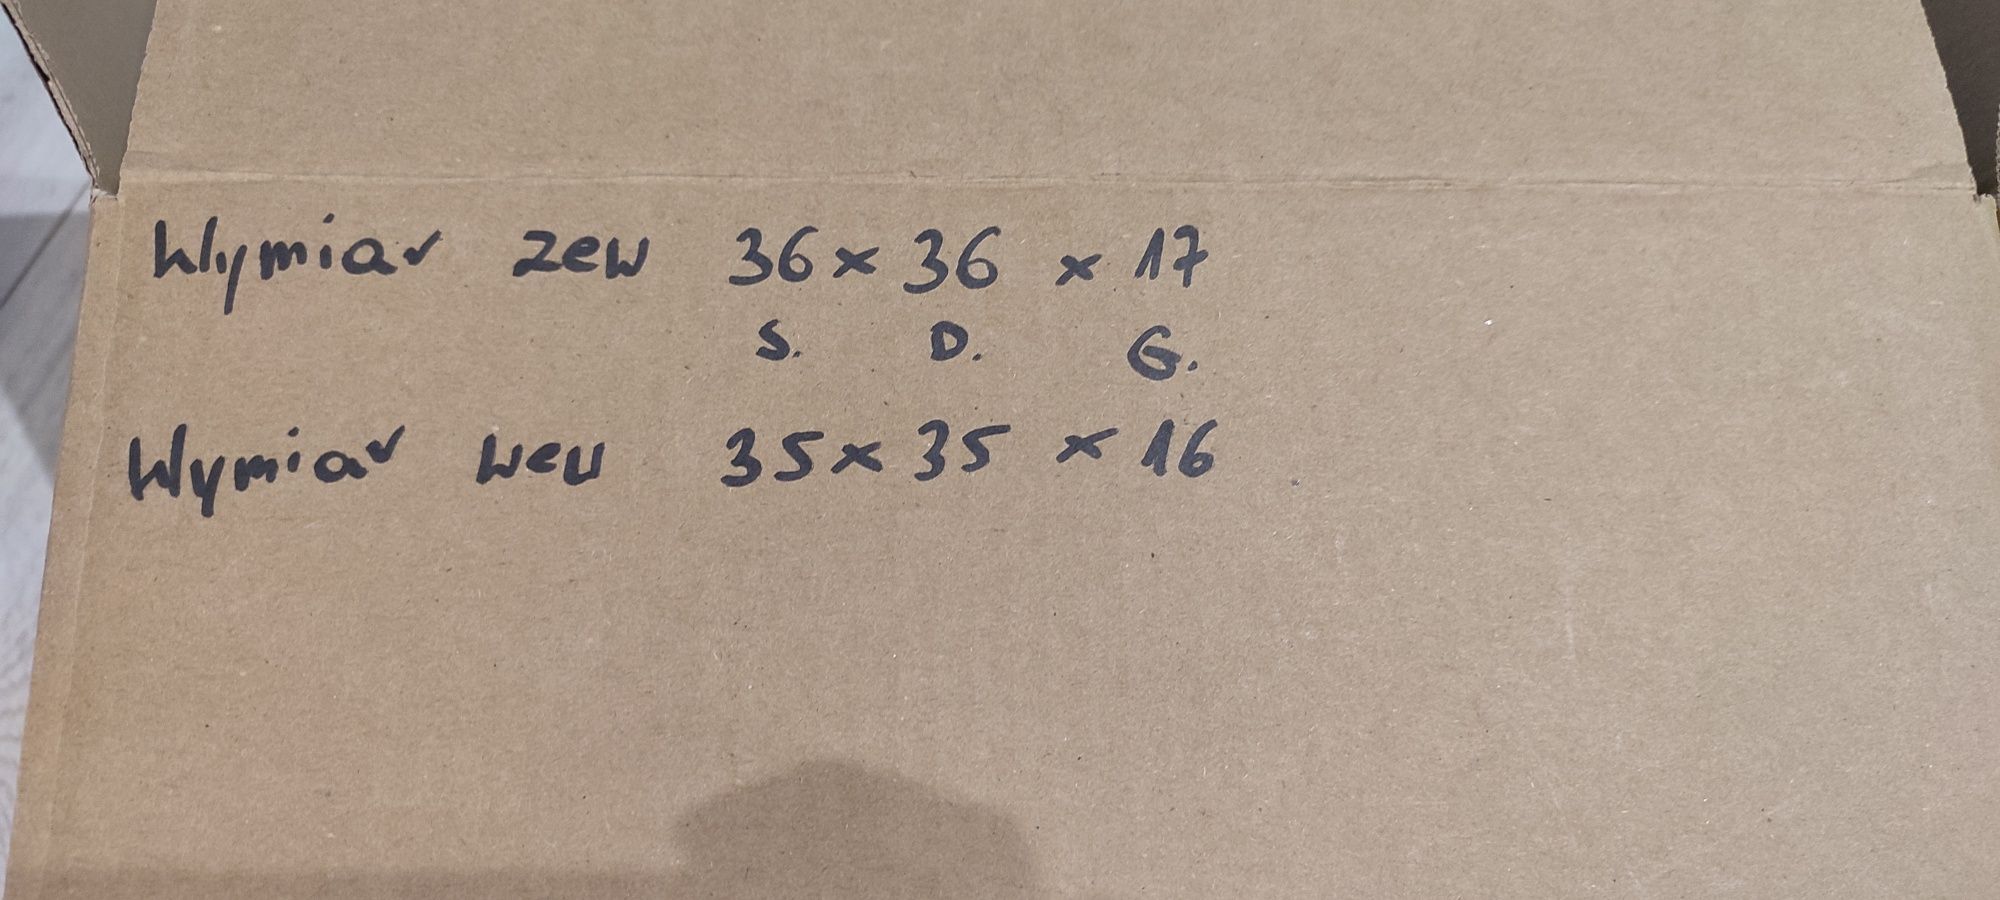 Wymiar zew 36 x 36 x 17
S. D. G.
Wymiar wew 35 x 35 x 16